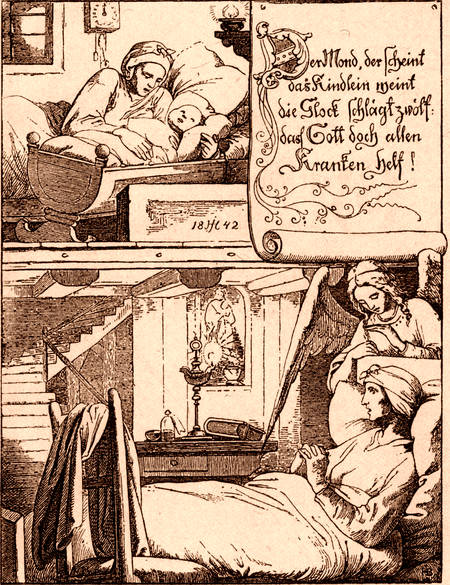 Der Mond, der scheint
das Kindlein weint
die Glock schlägt zwölf:
daß Gott doch allen
Kranken helf!
18 42